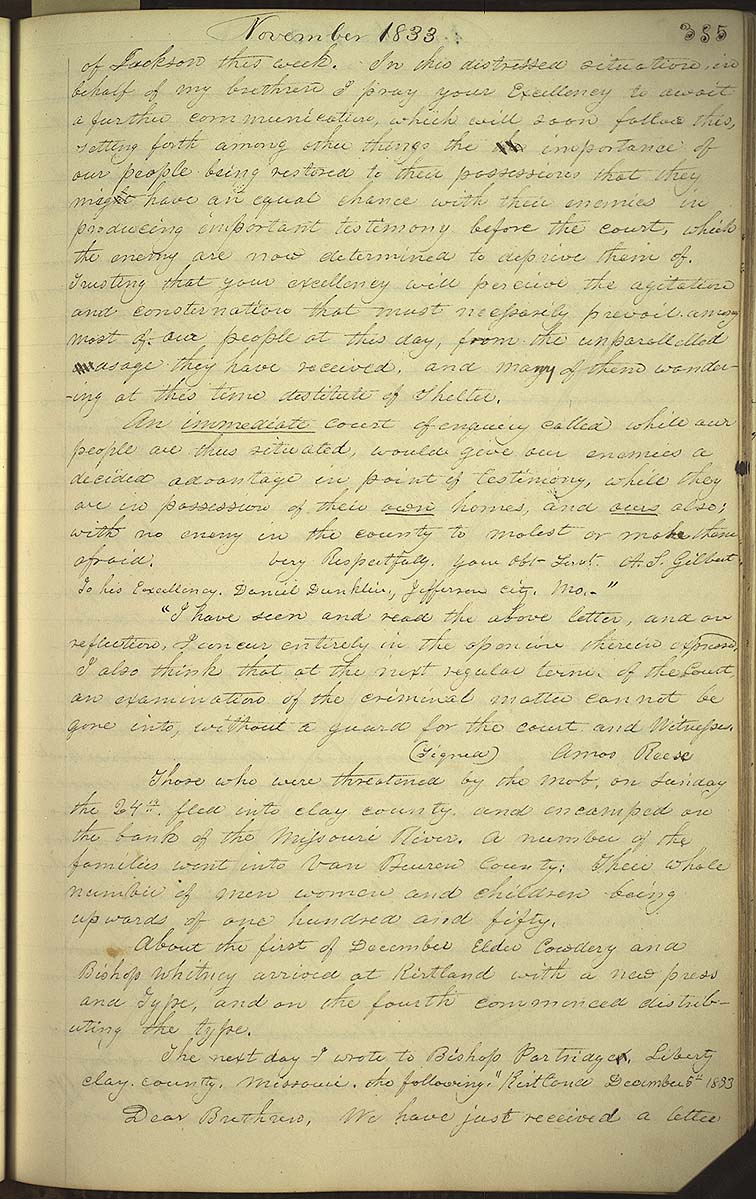 November 1833.
385
of Jackson this week. In this distressed situation, in
behalf of my brethren I pray your Excellency to await
a further communication, which will soon follow this,
setting forth among other things the importance of
our people being restored to their possessions that they
might have an equal chance with their enemies in
producing important testimony before the court, which
the enemy are now determined to deprive them of.
Trusting that your excellency will perceive the agitation
and consternation that must necessarily prevail among
most of our people at this day, from the unparallelled
usage they have received, and many of them wander-
-ing at this time destitute of Shelter.
An immediate court of enquiry called while our
people are thus situated, would give our enemies a
decided advantage in point of testimony, while they
are in possession of their own homes, and ours also;
with no enemy in the county to molest or make them
afraid. Very Respectfully, your Obt- Servt. A. S. Gilbert
To his Excellency. Daniel Dunklin, Jefferson City, Mo.-"
"I have seen and read the above letter, and on
reflection, I concur entirely in the openion therein expressed,
I also think that at the next regular term of the Court,
an examination of the criminal matter cannot be
gone into, without a guard for the court and Witnesses.
(Signed) Amos Reese
Those who were threatened by the mob, on Sunday
the 24th. fled into clay county and encamped on
the bank of the Missouri River. A number of the
families went into Van Buren County: Their whole
number of men women and children being
upwards of one hundred and fifty.
About the first of December Elder Cowdery and
Bishop Whitney arrived at Kirtland with a new press
and Type, and on the fourth commenced distrib-
uting the type.
The next day I wrote to Bishop Partridge, Liberty
clay. county, Missouri. the following. "Kirtland December 5th 1833
Dear Brethren, We have just received a letter